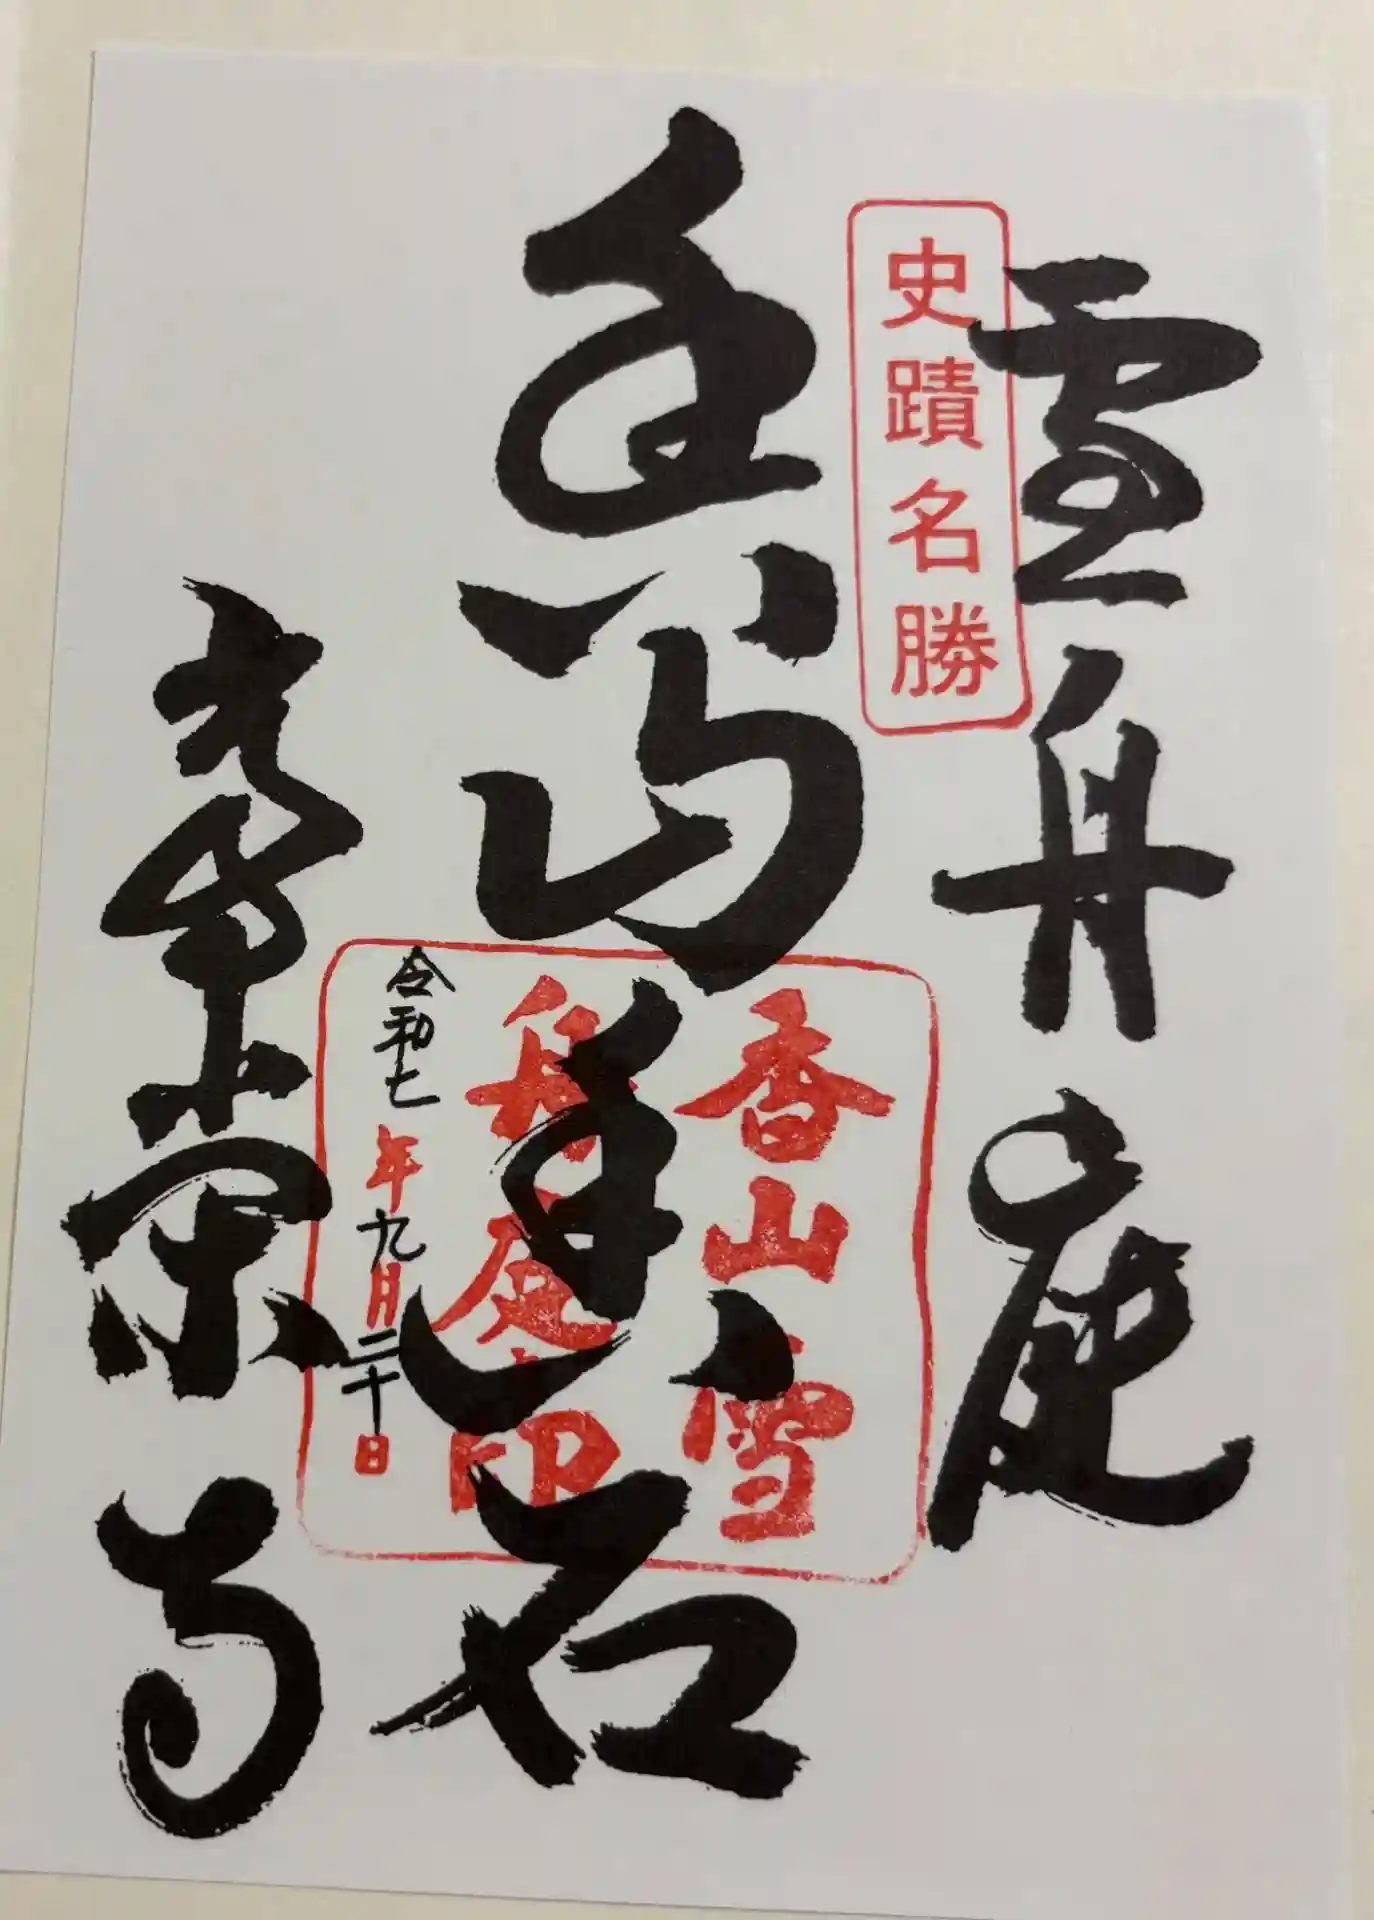 雪舟庭
史蹟名勝
石
香山雪
舟庭印
令和七年九月二十日
常栄寺